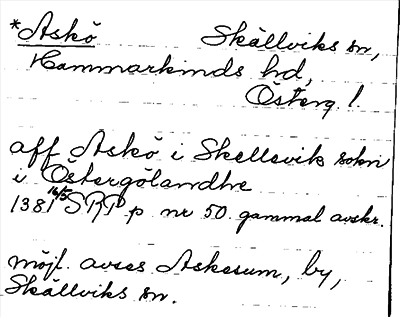 *Askö Skällviks sn,
Hammarkinds hd,
Österg. l.
aff Askö i Skellsevik sokn
i Östergölandhe
1381 16/5 SRP p nr 50. gammal avskr.
möjl. avses Askesum, by,
Skällviks sn.